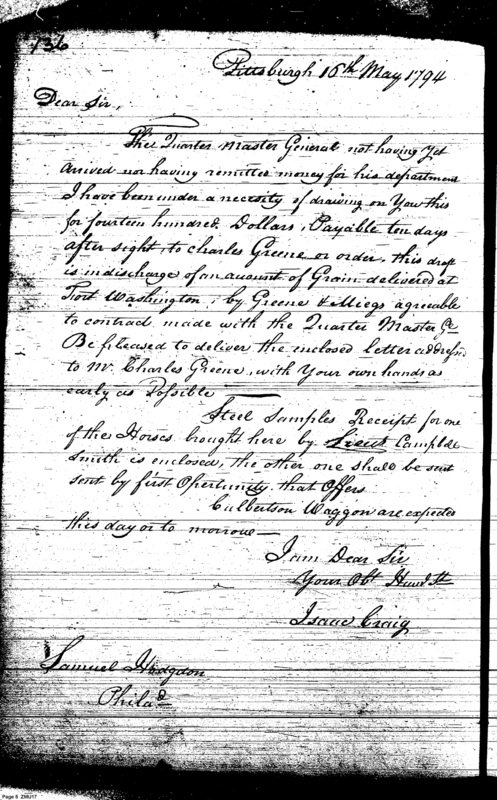 136
Pittsburgh 16th May 1794
Dear Sir,
The Quarter Master General not having yet
arrived nor having remitted money for his department
I have been under a necesity of drawing on You this
for fourteen hundred Dollars, Payable ten days
after sight, to Charles Greene or order, this draft
is in discharge of an amount of Grain delivered at
Fort Washington, by Greene & Miegs agreeable
to contract made with the Quarter Master Gl
Be pleased to deliver the inclosed letter addressed
to Mr. Charles Greene, with Your own hands as
early as Possible
Steel Samples Receipt for one
of the Horses brought here by Lieut Campble
Smith is enclosed, the other one shall be sent
sent by first Opertunity that Offers
Culbertson Waggon are expected
this day or to morrow
I am Dear Sir
Your Obt Humb St
Isaac Craig
Samuel Hodgdon
Philad
Page 5 ZMU17